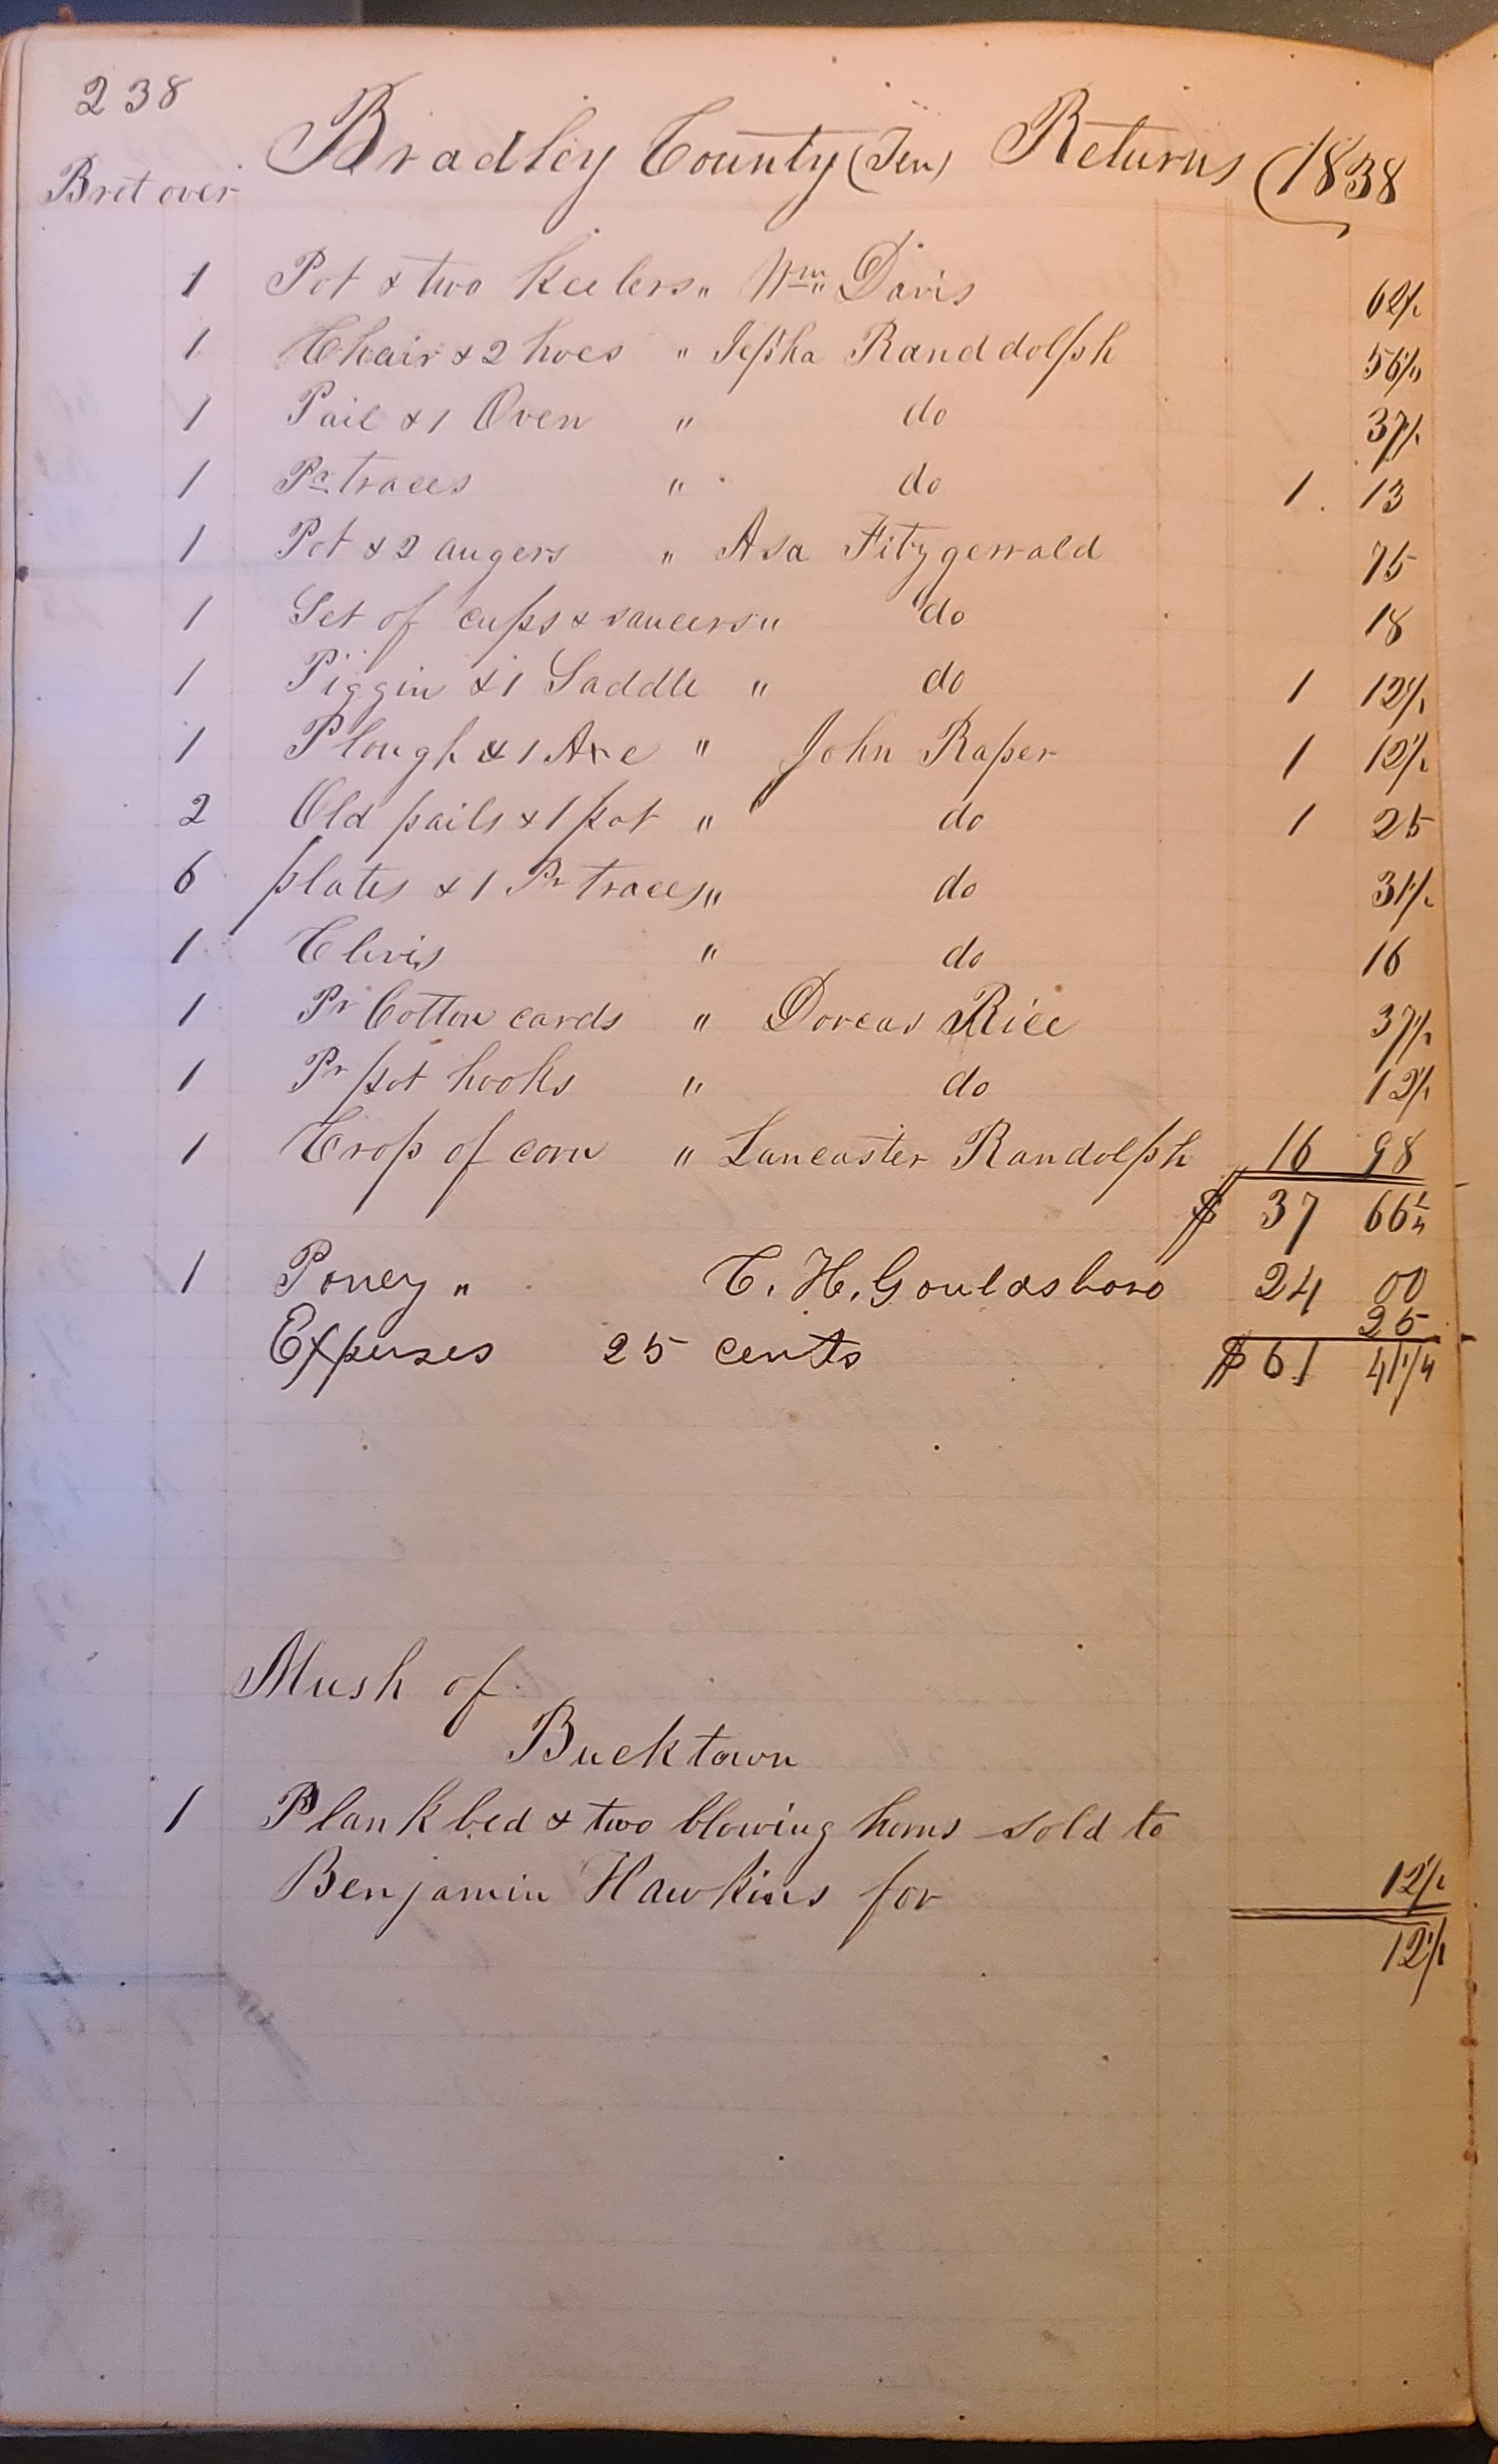 238
Bradley County (Ten) Returns (1838
Brot over
1 Pot & two Keelers " Wm " Davis 62½
1 Chair & 2 hoes " Jepha Randdolph 56¼
1 Pail & 1 Oven " do 37½
1 Pr traces " do 1 . 13
1 Pot & 2 augers " Asa Fitzgerrald 75
1 Set of cups & saucers " do 18
1 Piggin & 1 Saddle " do 1 12½
1 Plough & 1 Axe " John Raper 1 12½
2 Old pails & 1 pot " do 1 25
6 plates & 1 Pr traces " do 31½
1 Clevis " do 16
1 Pr Cotton cards " Dorcas Rice 37½
1 Pr pot hooks " do 12½
1 Crop of corn " Lancaster Randolph 16 98
$ 37 66¼
1 Poney " C. H. Gouldsboro 24 00
25
Expenses 25 cents $ 61 41¼
Mush of
Bucktown
1 Plank bed & two blowing horns sold to
Benjamin Hawkins for 12½
12½